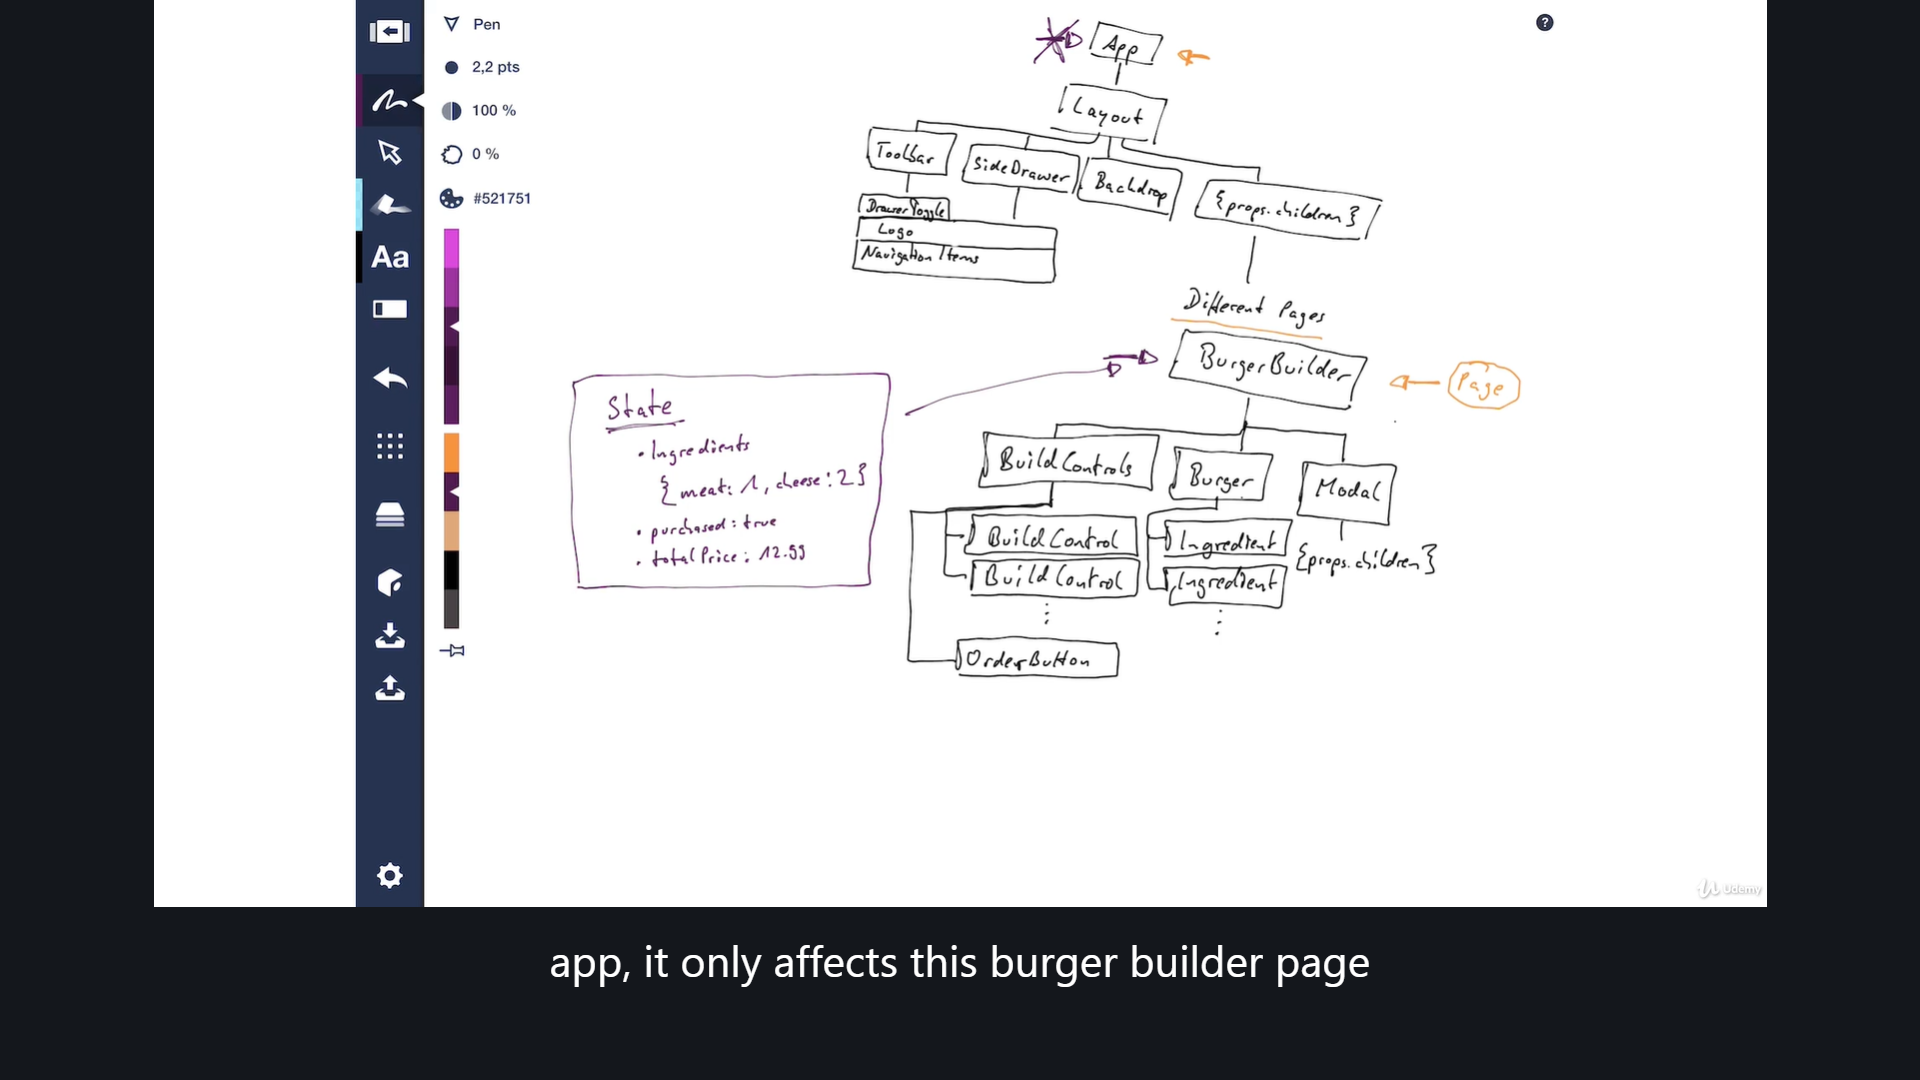 Pen
2,2 pts
100 %
0 %
#521751
Aa
?
App
Layout
Toolbar
SideDrawer
Backdrop
{props.children}
DrawerToggle
Logo
Navigation Items
Different Pages
BurgerBuilder
Page
State
• Ingredients
{meat: 1, cheese: 2}
• purchased: true
• totalPrice: 12.99
BuildControls
Burger
Modal
BuildControl
BuildControl
Ingredient
Ingredient
{props.children}
OrderButton
Udemy
app, it only affects this burger builder page